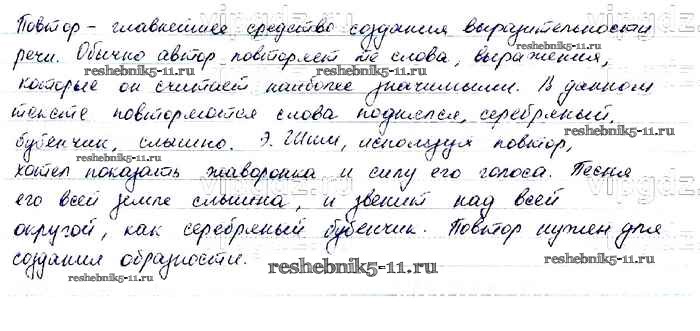 Повтор – главнейшее средство создания выразительности
речи. Обычно автор повторяет те слова, выражения,
reshebnik5-11.ru reshebnik5-11.ru
которые он считает наиболее значимыми. В данном
тексте повторяются слова поднялся, серебряный,
reshebnik5-11.ru
бубенчик, слышно. Э. Шим, используя повтор,
reshebnik5-11.ru
хотел показать жаворонка и силу его голоса. Песня
его всей земле слышна, и звенит над всей
vipgdz
округой, как серебряный бубенчик. Повтор нужен для
создания образности.
reshebnik5-11.ru
reshebnik5-11.ru